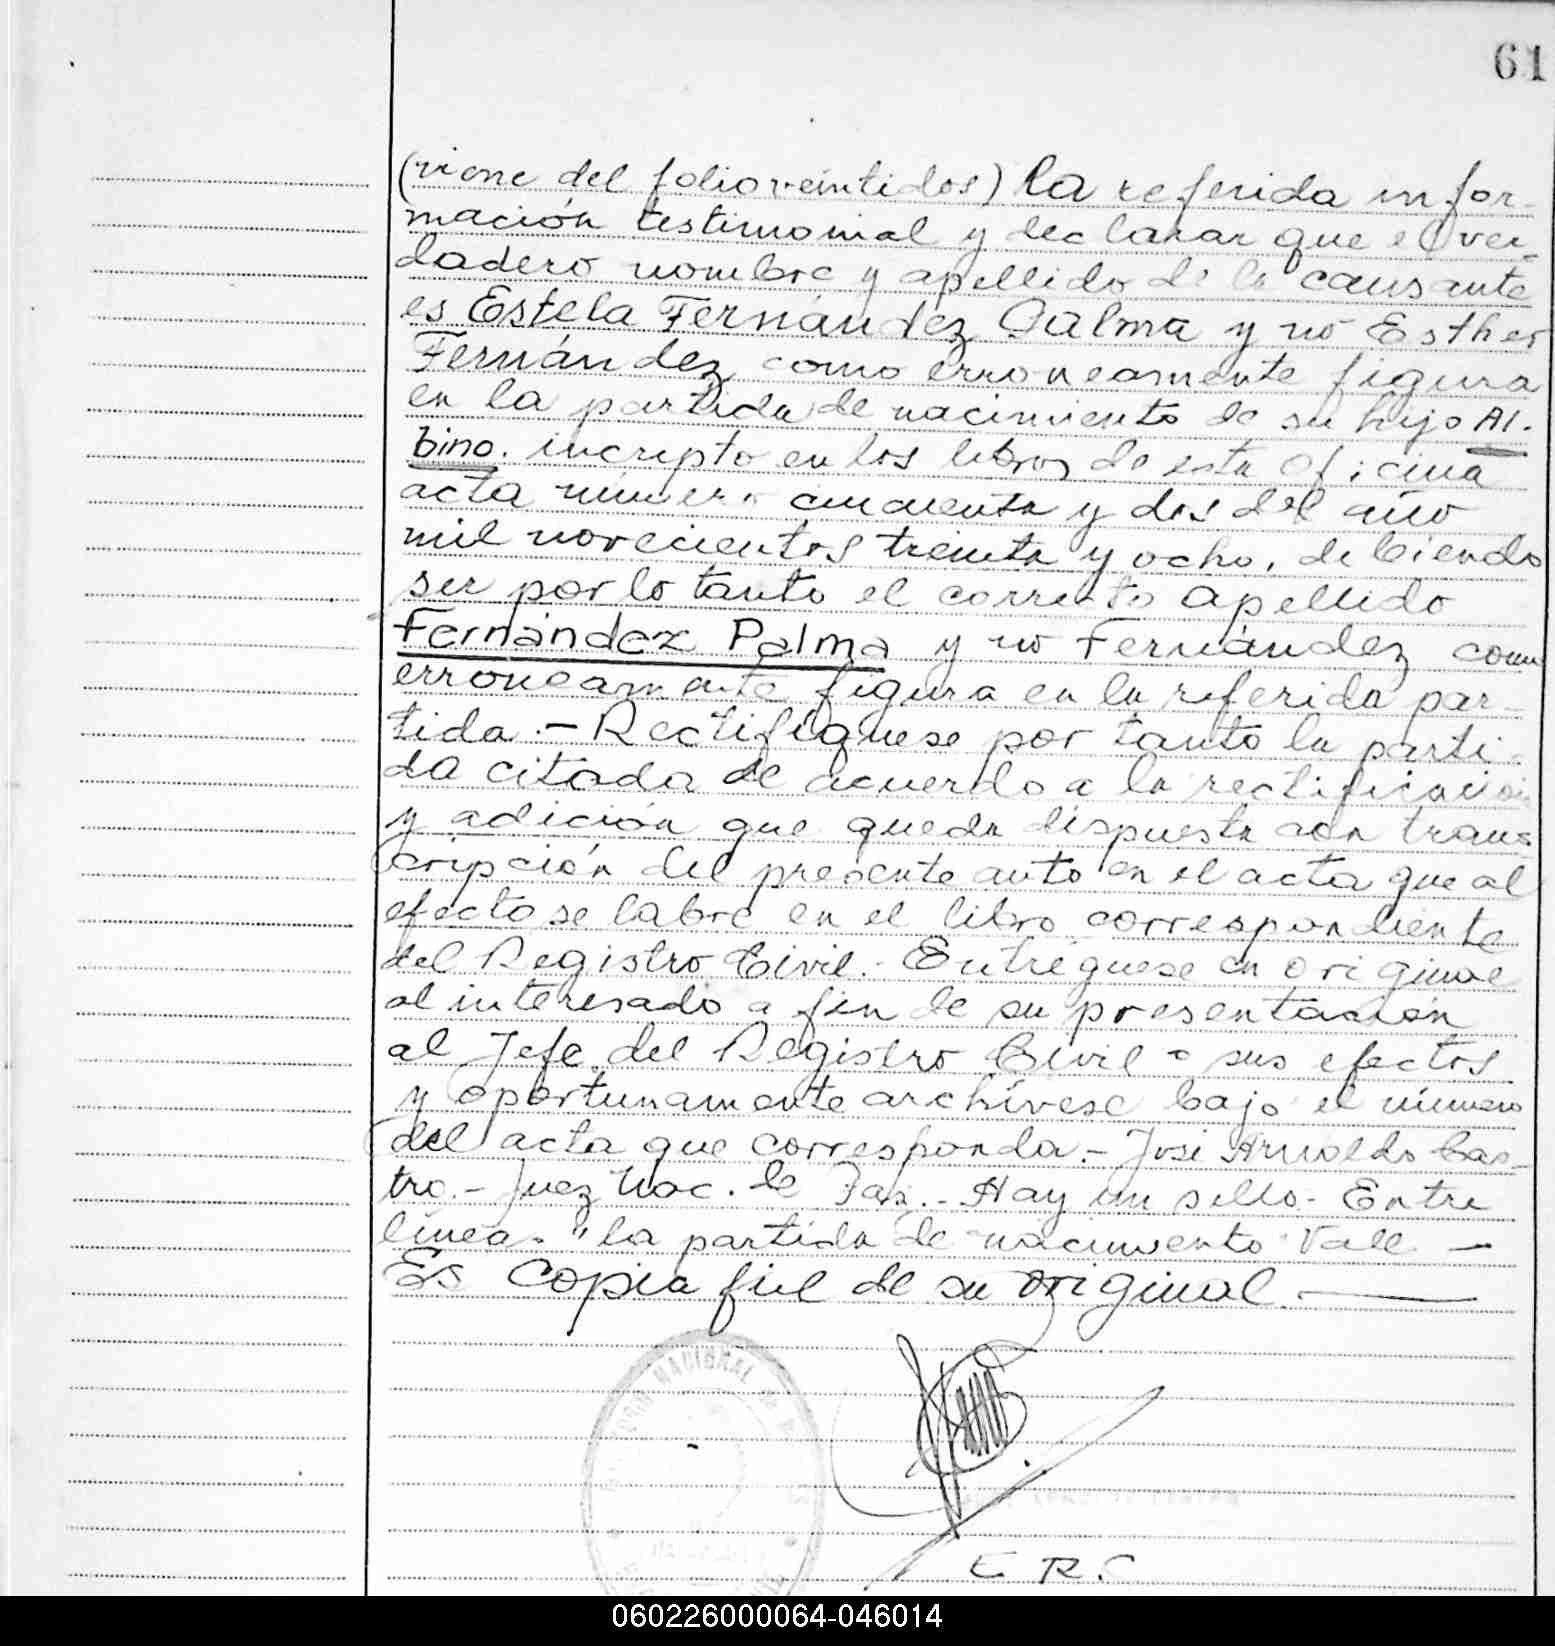 61
(viene del folio veintidos) la referida infor-
mación testimonial y declarar que el ver-
dadero nombre y apellido de la causante
es Estela Fernández Palma y no Esther
Fernández como erroneamente figura
en la partida de nacimiento de su hijo Al-
bino. incripto en los libros de esta oficina
acta número cincuenta y dos del año
mil novecientos treinta y ocho, debiendo
ser por lo tanto el correcto apellido
Fernández Palma y no Fernández como
erroneamente figura en la referida par-
tida.- Rectifíquese por tanto la parti-
da citada de acuerdo a la rectificación
y adición que queda dispuesta con trans
cripción del presente auto en el acta que al
efecto se labre en el libro correspondiente
del Registro Civil.- Entréguese en original
al interesado a fin de su presentación
al Jefe del Registro Civil a sus efectos
y oportunamente archívese bajo el número
del acta que corresponda.- José Arnoldo Cas-
tro.- Juez Nac. de Paz.- Hay un sello- Entre
línea- "la partida de nacimiento" Vale -
Es Copia fiel de su original.
NACIONAL
E R.C
060226000064-046014